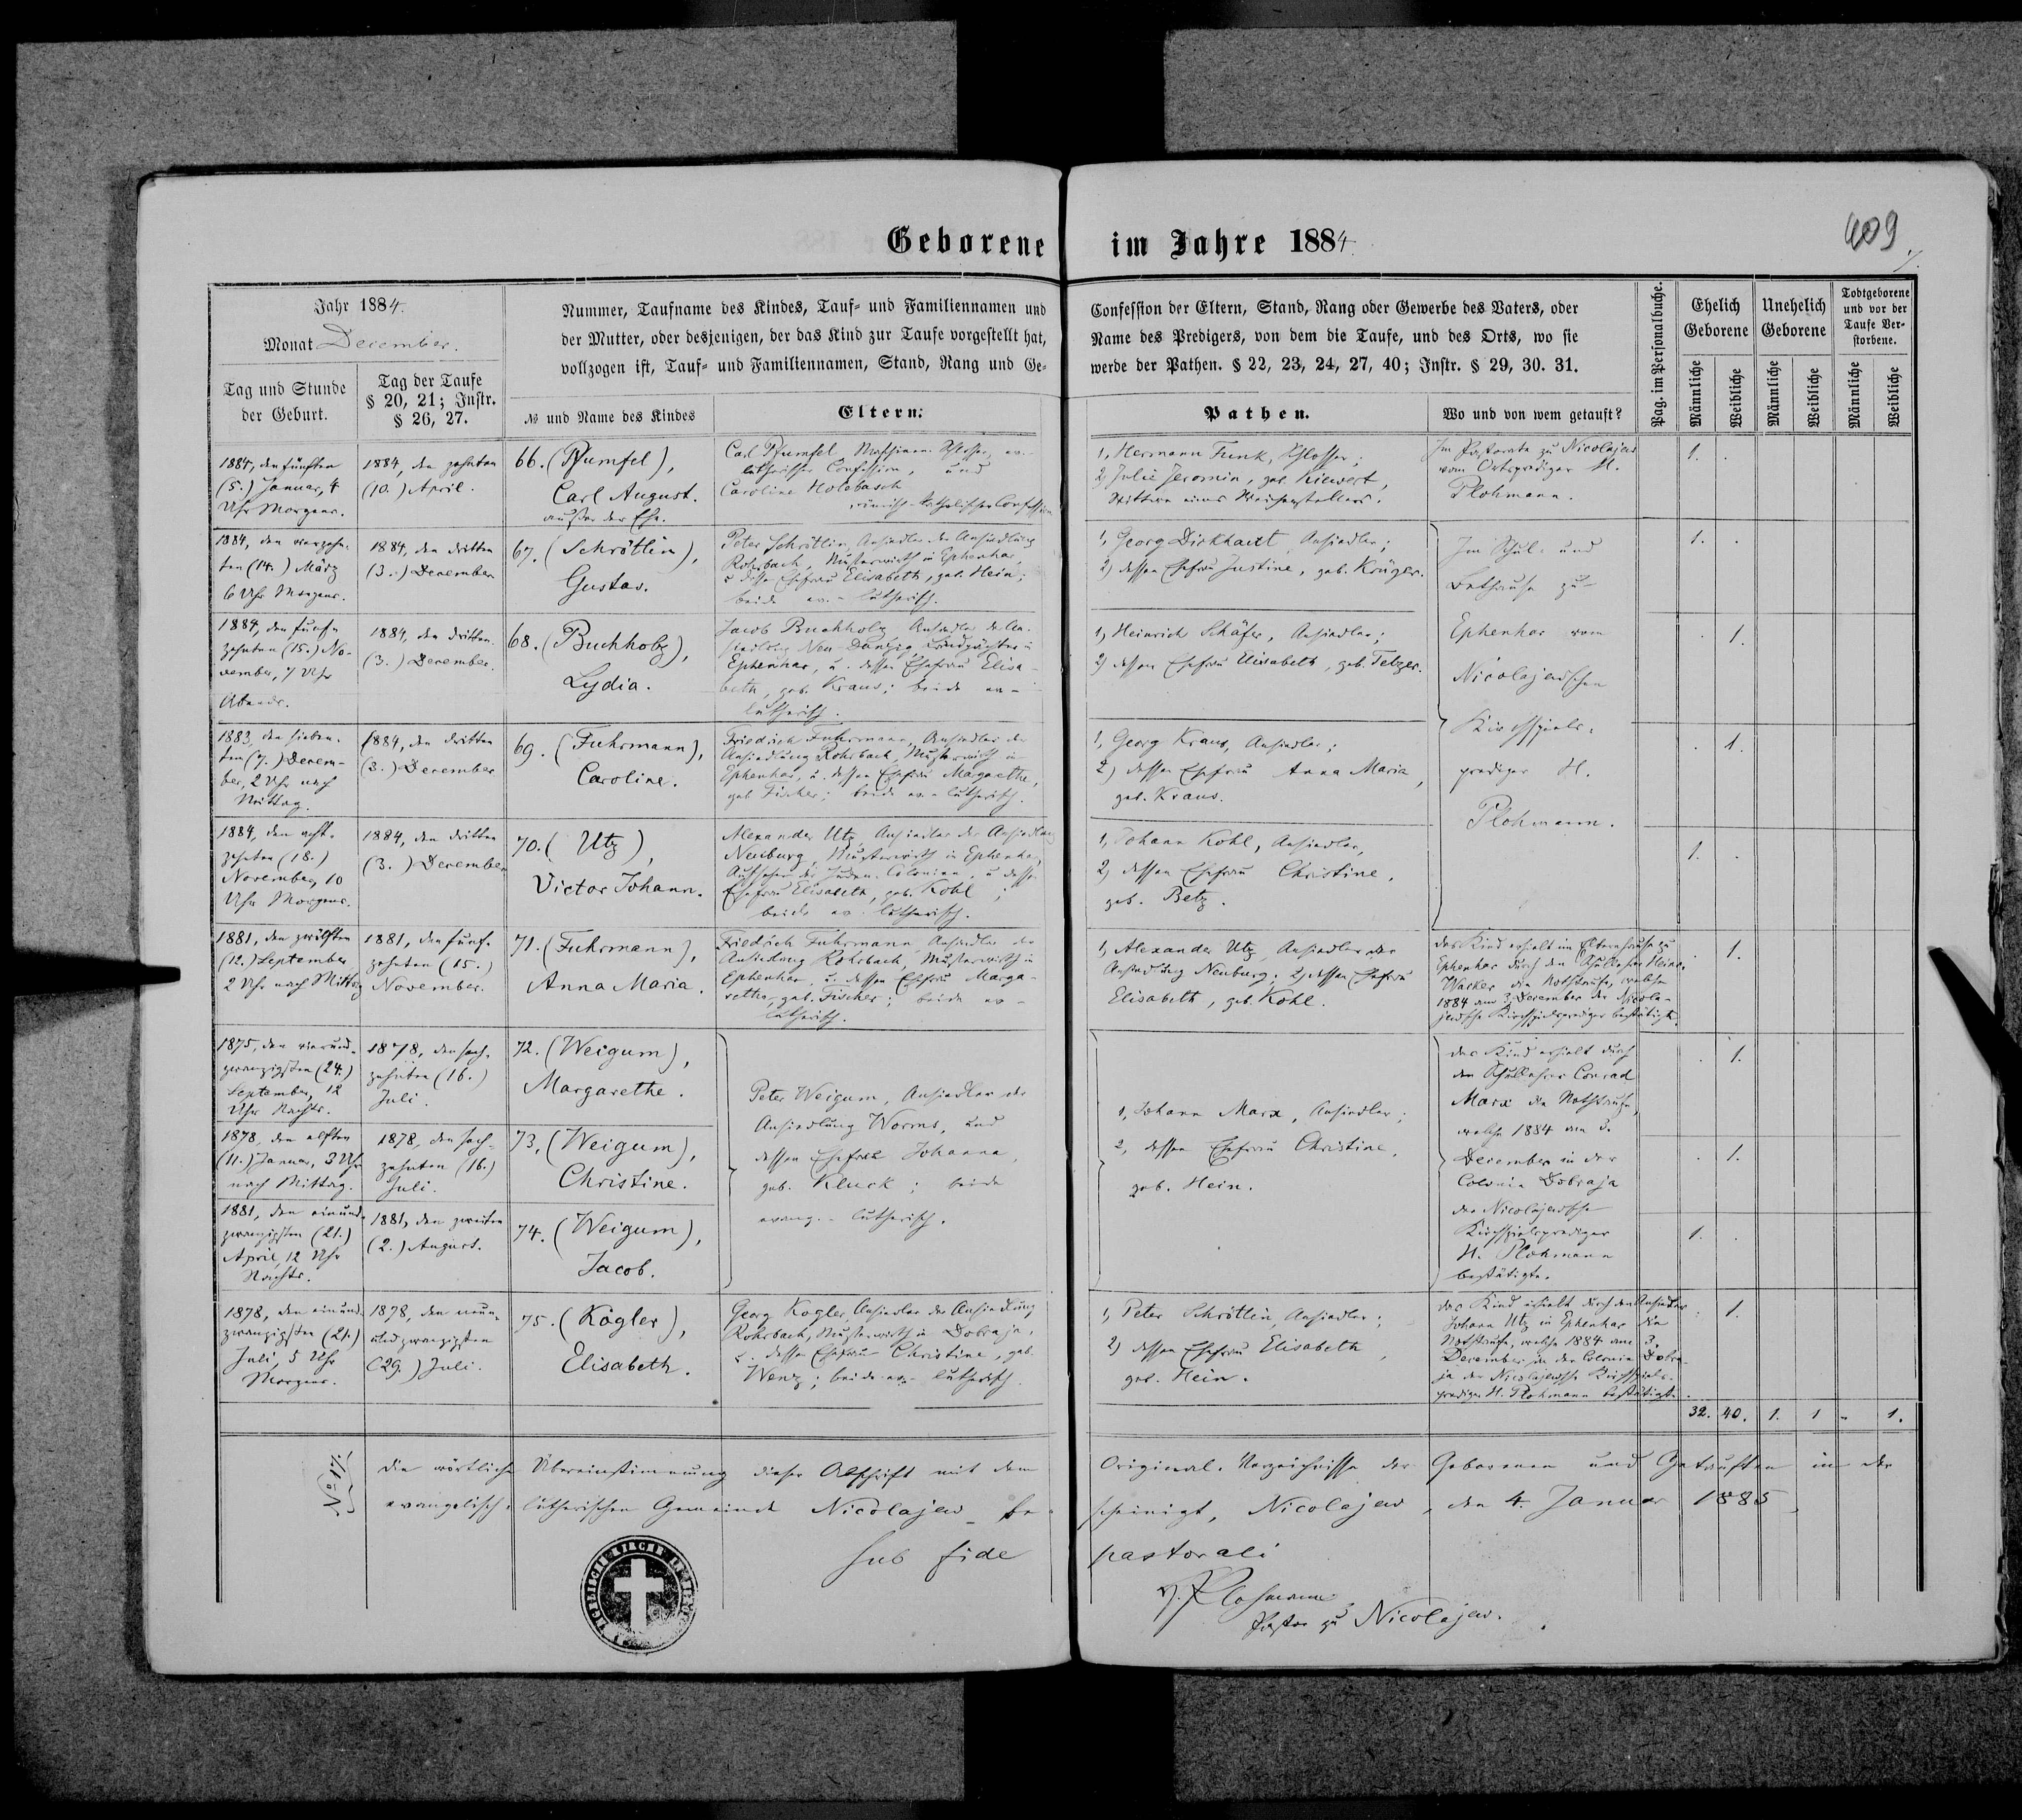 409
7.
Geborene im Jahre 1884.
Jahr 1884.
Monat December.
Tag und Stunde
der Geburt.
Tag der Taufe
§ 20, 21; Instr.
§ 26, 27.
Nummer, Taufname des Kindes, Tauf- und Familiennamen und
der Mutter, oder desjenigen, der das Kind zur Taufe vorgestellt hat,
vollzogen ist, Tauf- und Familiennamen, Stand, Rang und Ge-
№ und Name des Kindes
Eltern.
Confession der Eltern, Stand, Rang oder Gewerbe des Vaters, oder
Name des Predigers, von dem die Taufe, und des Orts, wo sie
werde der Pathen. § 22, 23, 24, 27, 40; Instr. § 29, 30. 31.
Pathen.
Wo und von wem getauft?
Pag. im Personalbuche.
Ehelich
Geborene
Unehelich
Geborene
Todtgeborene
und vor der
Taufe Ver-
storbene.
Männliche
Weibliche
Männliche
Weibliche
Männliche
Weibliche
1884, den fünften
(5.) Januar, 4
Uhr Morgens.
1884, den zehnten
(10.) April.
66. (Pfumfel),
Carl August.
außer der Ehe.
Carl Pfumfel, Maschinen-Schlosser, ev.-
lutherischer Confession, und
Caroline Holobasch
römisch-katholischer Confession
1, Hermann Funk, Schlosser;
2, Julie Jeromin, geb. Kiewert,
Wittwe eines Weichenstellers.
Im Pastorate zu Nicolajew
vom Ortsprediger H.
Plohmann.
1.
1884, den vierzehn-
ten (14.) März
6 Uhr Morgens.
1884, den dritten
(3.) December
67. (Schrötlin),
Gustav.
Peter Schrötlin, Ansiedler der Ansiedlung
Rohrbach, Musterwirth in Ephenhar,
u. dessen Ehefrau Elisabeth, geb. Hein;
beide ev.-lutherisch.
1, Georg Dickhaut, Ansiedler;
2) dessen Ehefrau Justine, geb. Krüger.
Im Schul- und
Bethause zu
Ephenhar vom
Nicolajewschen
Kirchspiels-
prediger H.
Plohmann.
1.
1884, den fünf-
zehnten (15.) No-
vember, 7 Uhr
Abends.
1884, den dritten
(3.) December.
68. (Buchholz),
Lydia.
Jacob Buchholz, Ansiedler der An-
siedlung Neu-Danzig, Landpächter in
Ephenhar, u. dessen Ehefrau Elisa-
beth, geb. Kraus; beide ev.-
lutherisch.
1, Heinrich Schäfer, Ansiedler;
2) dessen Ehefrau Elisabeth, geb. Telzer.
1.
1883, den sieben-
ten (7.) Decem-
ber, 2 Uhr nach
Mittag.
1884, den dritten
(3.) December
69. (Fuhrmann),
Caroline.
Friedrich Fuhrmann, Ansiedler der
Ansiedlung Rohrbach, Musterwirth in
Ephenhar, u. dessen Ehefrau Margarethe,
geb. Fischer; beide ev.-lutherisch.
1, Georg Kraus, Ansiedler;
2) dessen Ehefrau Anna Maria,
geb. Kraus.
1.
1884, den acht-
zehnten (18.)
November, 10
Uhr Morgens.
1884, den dritten
(3.) December
70. (Utz),
Victor Johann.
Alexander Utz, Ansiedler der Ansiedlung
Neuburg, Musterwirth in Ephenhar,
Aufseher der Juden-Colonien, u. dessen
Ehefrau Elisabeth, geb. Kohl;
beide ev. lutherisch.
1, Johann Kohl, Ansiedler,
2) dessen Ehefrau Christine,
geb. Betz.
1.
1881, den zwölften
(12.) September
2 Uhr nach Mittag
1881, den fünf-
zehnten (15.)
November.
71. (Fuhrmann),
Anna Maria.
Friedrich Fuhrmann, Ansiedler der
Ansiedlung Rohrbach, Musterwirth in
Ephenhar, u. dessen Ehefrau Marga-
rethe, geb. Fischer; beide ev-
lutherisch.
1, Alexander Utz, Ansiedler der
Ansiedlung Neuburg; 2) dessen Ehefrau
Elisabeth, geb. Kohl.
Das Kind erhielt im Elternhause zu
Ephenhar durch den Schullehrer Heinr.
Wacker die Nothtaufe, welche
1884 am 3. December der Nicola-
jewsche Kirchspielsprediger bestätigte.
1.
1875, den vierund-
zwanzigsten (24.)
September, 12
Uhr Nachts.
1878, den sech-
zehnten (16.)
Juli.
72. (Weigum),
Margarethe.
Peter Weigum, Ansiedler der
Ansiedlung Worms, und
dessen Ehefrau Johanna,
geb. Kluck; beide
evang.-lutherisch.
1, Johann Marx, Ansiedler;
2, dessen Ehefrau Christine,
geb. Hein.
Das Kind erhielt durch
den Schullehrer Conrad
Marx die Nothtaufe,
welche 1884 am 3.
December in der
Colonie Dobraja
der Nicolajewsche
Kirchspielsprediger
H. Plohmann
bestätigte.
1.
1878, den elften
(11.) Januar, 3 Uhr
nach Mittag.
1878, den sech-
zehnten (16.)
Juli.
73. (Weigum),
Christine.
1.
1881, den einund-
zwanzigsten (21.)
April, 12 Uhr
Nachts.
1881, den zweiten
(2.) August.
74. (Weigum),
Jacob.
1.
1878, den einund-
zwanzigsten (21.)
Juli, 5 Uhr
Morgens.
1878, den neun-
undzwanzigsten
(29.) Juli.
75. (Kögler),
Elisabeth.
Georg Kogler, Ansiedler der Ansiedlung
Rohrbach, Musterwirth in Dobraja,
u. dessen Ehefrau Christine, geb.
Wenz; beide ev.-lutherisch.
1, Peter Schrötlin, Ansiedler;
2) dessen Ehefrau Elisabeth,
geb. Hein.
Das Kind erhielt durch den Ansiedler
Johann Utz in Ephenhar die
Nothtaufe, welche 1884 am 3.
December in der Colonie Dobra-
ja der Nicolajewsche Kirchspiels-
prediger H. Plohmann bestätigte.
1.
32. 40. 1. 1 - 1.
No 17.
Die wörtliche Übereinstimmung dieser Abschrift mit dem Original-Verzeichnisse der Geborenen und Getauften in der
evangelisch-lutherischen Gemeinde Nicolajew be-scheinigt, Nicolajew, den 4. Januar 1885,
sub fide pastorali
H. Plohmann
Pastor zu Nicolajew.